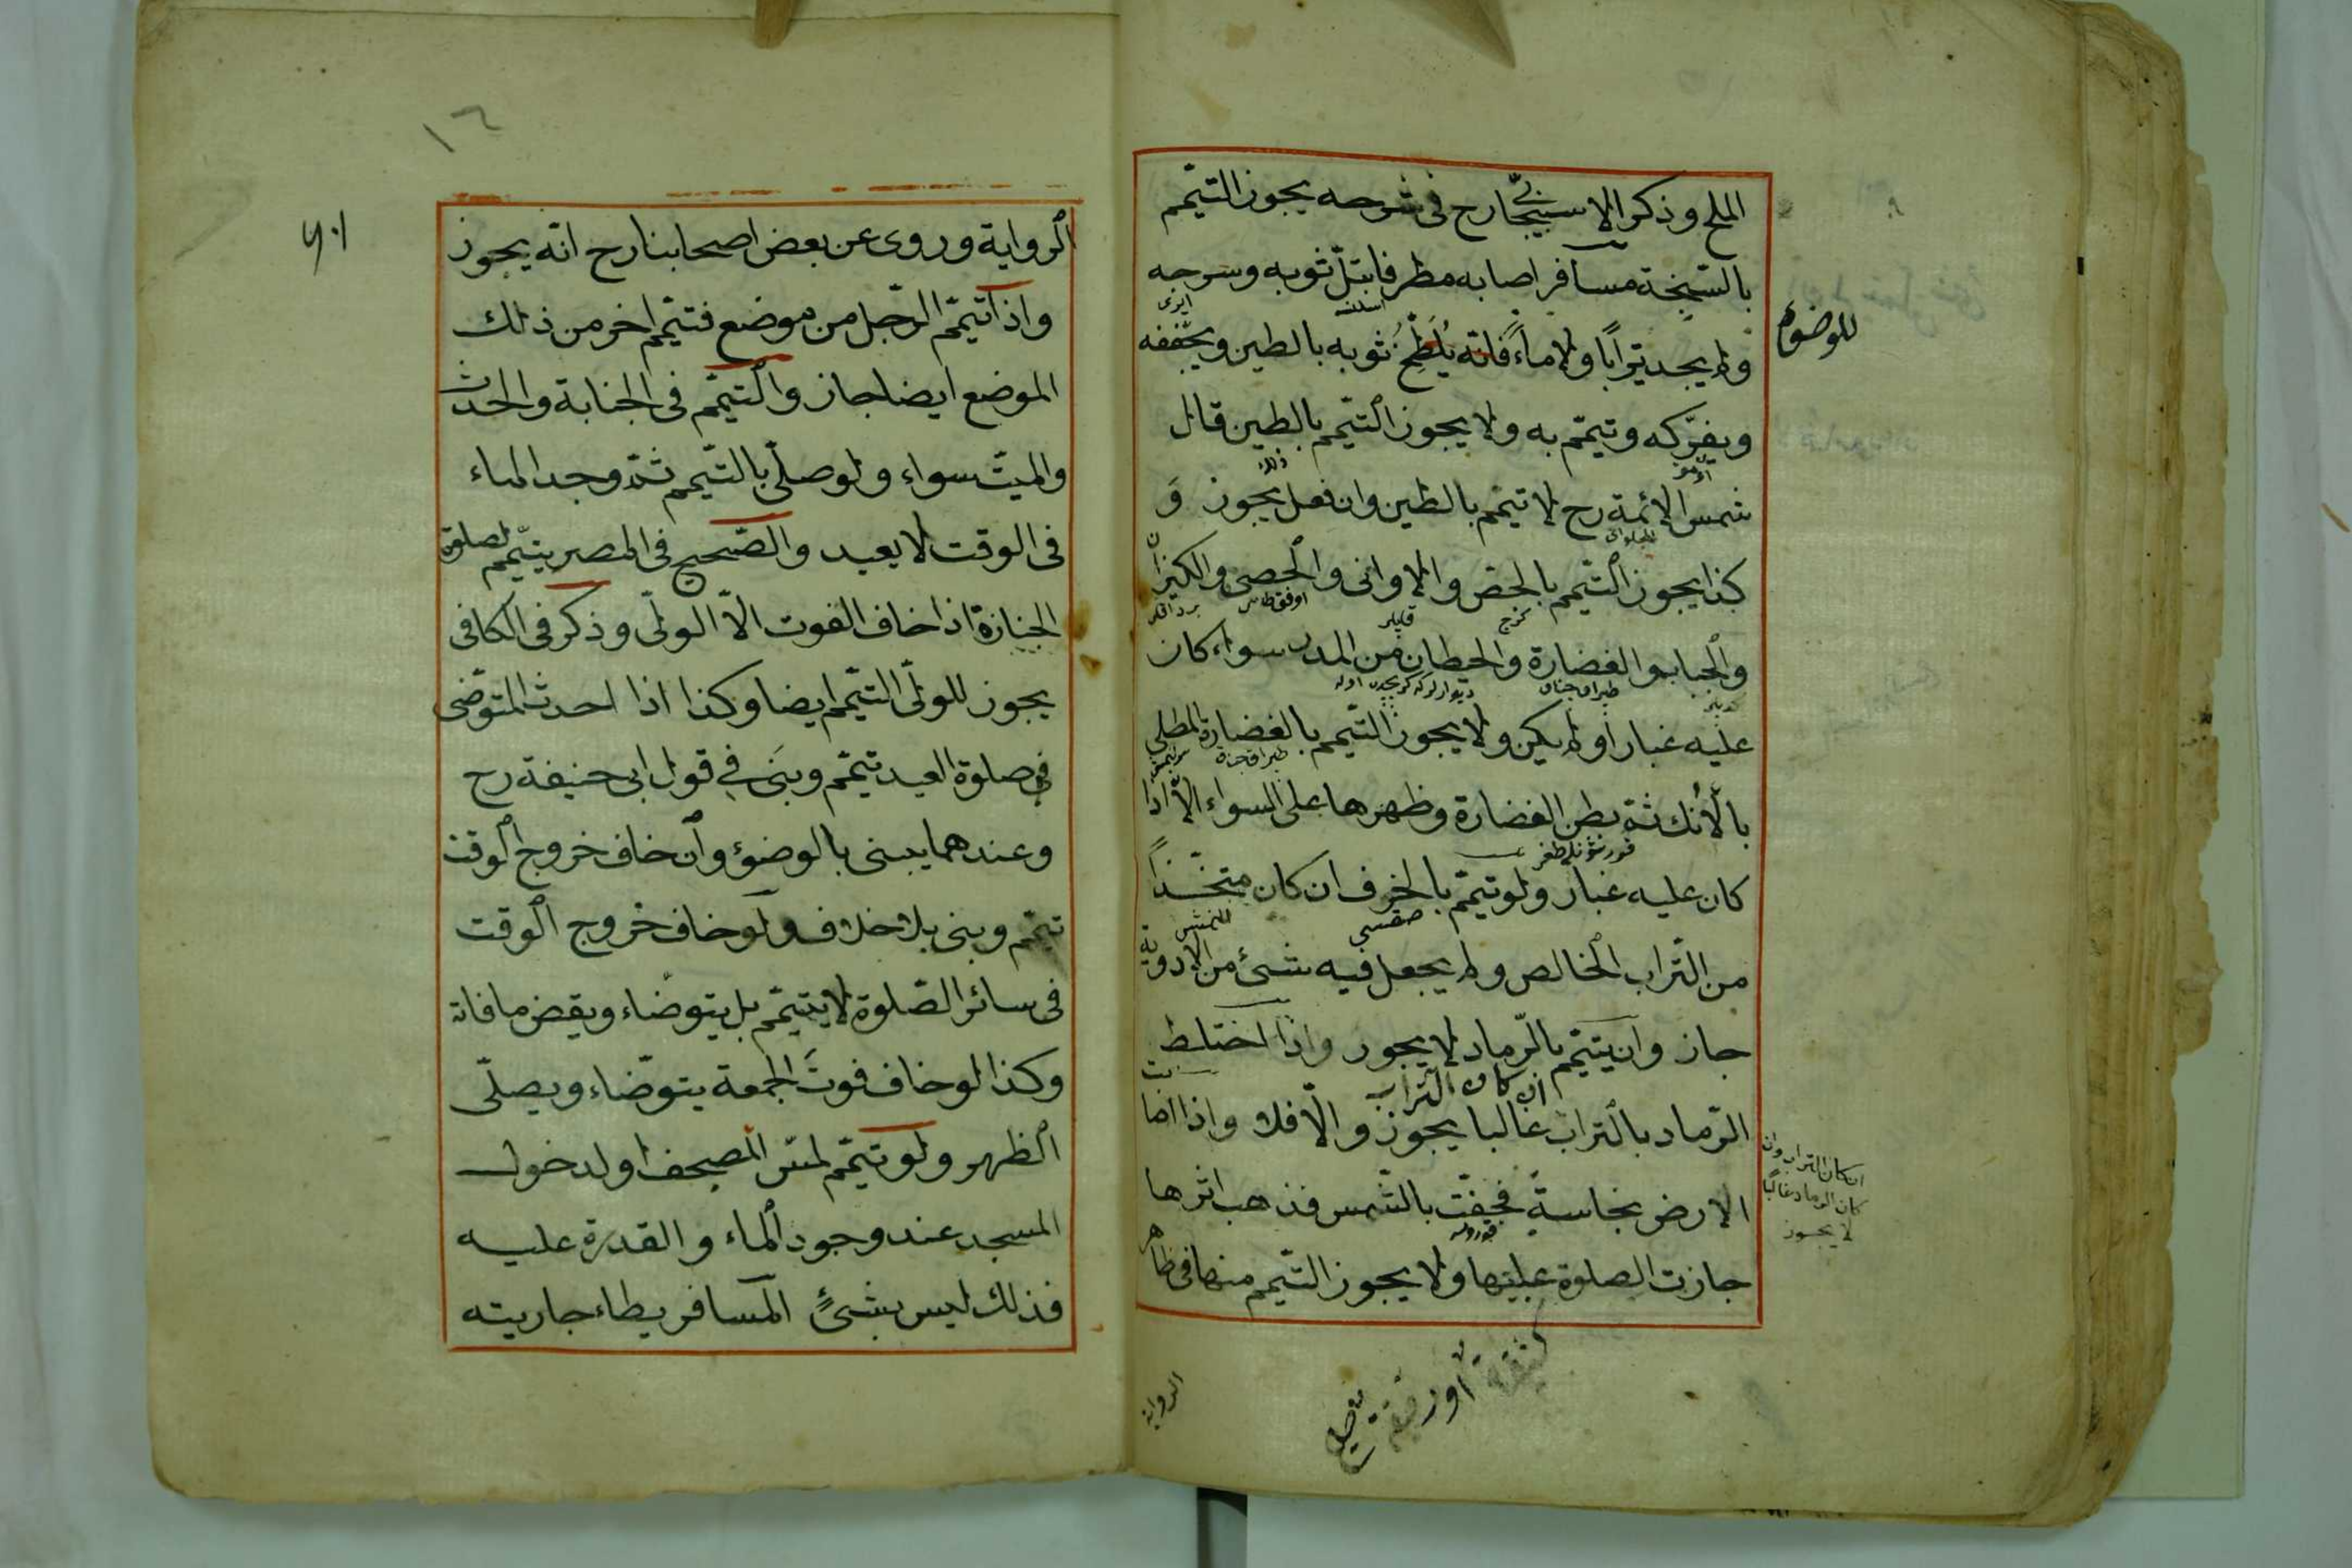 الملح وذكر الاسبيجابى رح فى شرحه يجوز التيمّم
بالسّبخة مسافر اصابه مطر فابتلّ ثوبه وسرجه
ولم يجد ترابًا ولا ماءً فانّه يُلَطِّخُ ثوبه بالطين ويجففه
للوضوء
ويفرّكه وتيمّم به ولا يجوز التيّمم بالطين قال
شمس الائمة رح لا تيمّم بالطين وان فعل يجوز وَ
كذا يجوز التيّمم بالجصّ والاوانى والحصى والكيزان
والجباب والغضارة والحيطان من المدر سواء كان
عليه غبار او لم يكن ولا يجوز التّيمم بالغضارة المطلى
بالآنك ثمّ بطن الغضارة وظهرها على السواء الاّ اذا
كان عليه غبار ولو تيمّم بالخزف ان كان متخّذاً
من التّراب الخالص ولم يجعل فيه شئ من الادوية
جاز وان يتيمّم بالرّماد لا يجوز واذا اختلط
الرّماد بالتراب غالبا يجوز والّا فلا واذا اصابت
ان كان التراب
ان كان التراب وان
كان الرماد غالبًا
لا يجوز
الارض نجاسةً فجفّت بالشّمس فذهب اثرها
جازت الصلوة عليها ولا يجوز التيّمم منها فى ظاهر
الرواية
١٦
الرواية وروى عن بعض اصحابنا رح انّه يجوز
واذا تيمّم الرّجل من موضع فتيمّم اخر من ذلك
الموضع ايضا جاز والتيمّم فى الجنابة والحدث
والميّت سواء ولو صلّى بالتّيمم ثمّ وجد الماء
فى الوقت لا يعيد والصّحيح فى المصر يتيّمم لصلوة
الجنازة اذا خاف الفوت الاّ الولّى وذكر فى الكافى
يجوز للولّى التيمّم ايضا وكذا اذا احدث المتوضّى
فى صلوة العيد تيمّم وبنَى فى قول ابى حنيفة رح
وعندهما يبنى بالوضوء وان خاف خروج الوقت
تيمّم وبنى بلا خلاف ولو خاف خروج الوقت
فى سائر الصّلوة لا يتيمّم بل يتوضاء ويقض ما فاته
وكذا لو خاف فوتَ الجمعة يتوضّاء ويصلّى
الظهر ولو تيمّم لمسّ المصحف او لدخول
المسجد عند وجود الماء والقدرة عليه
فذلك ليس بشئٍ المسافر يطاء جاريته